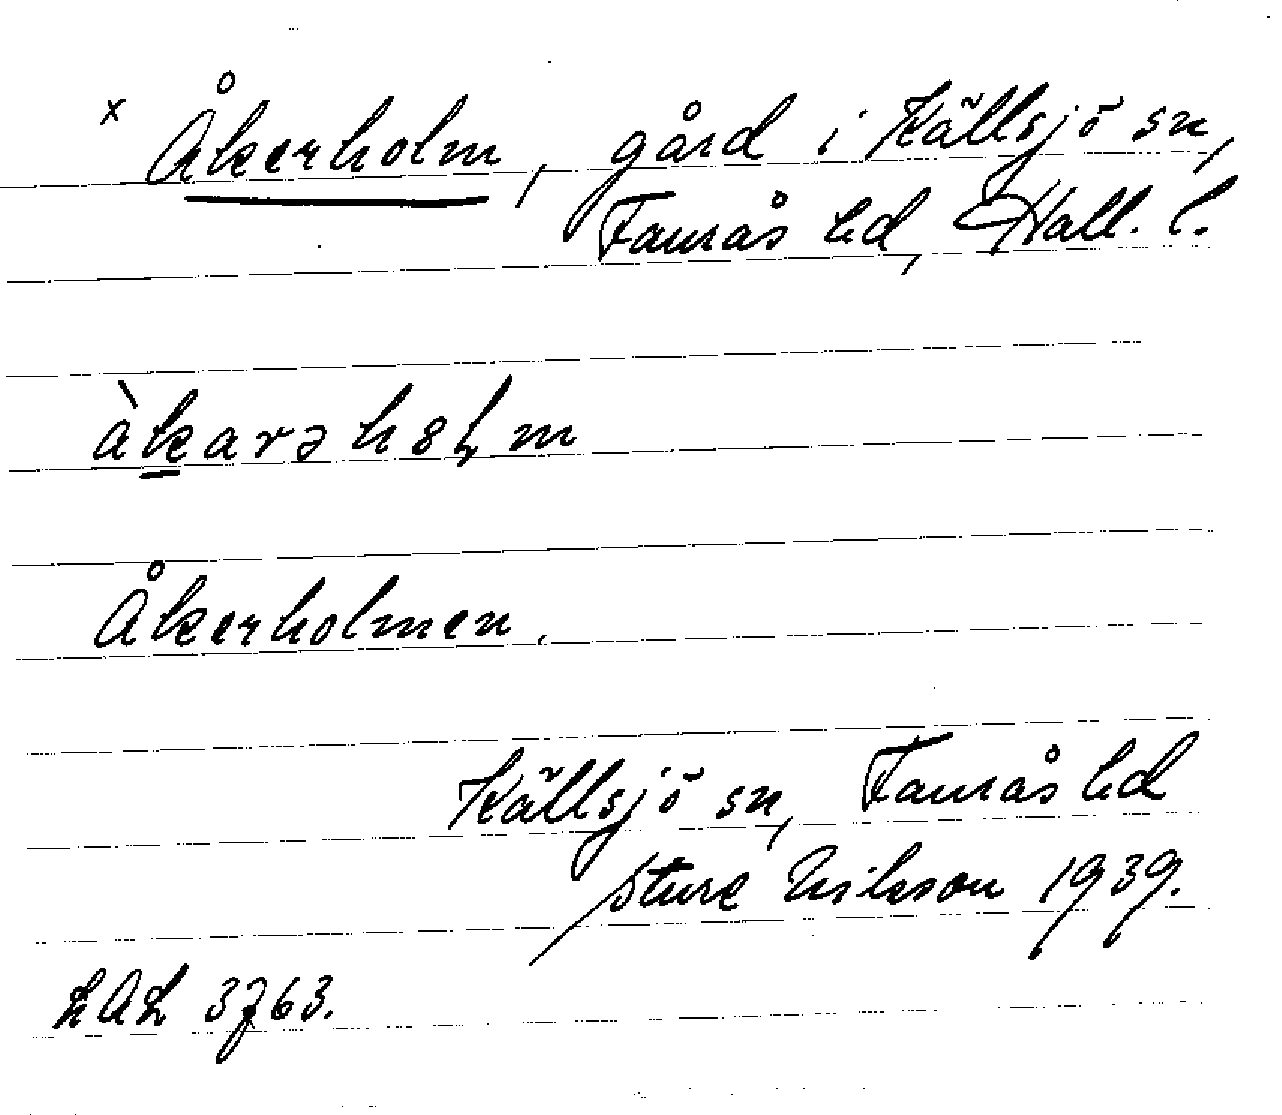 x Åkerholm, gård i Källsjö sn,
Faurås hd, Hall. l.
àkarə hɷlm
Åkerholmen.
Källsjö sn, Faurås hd
Sture Eriksson 1939.
LAL 3763.